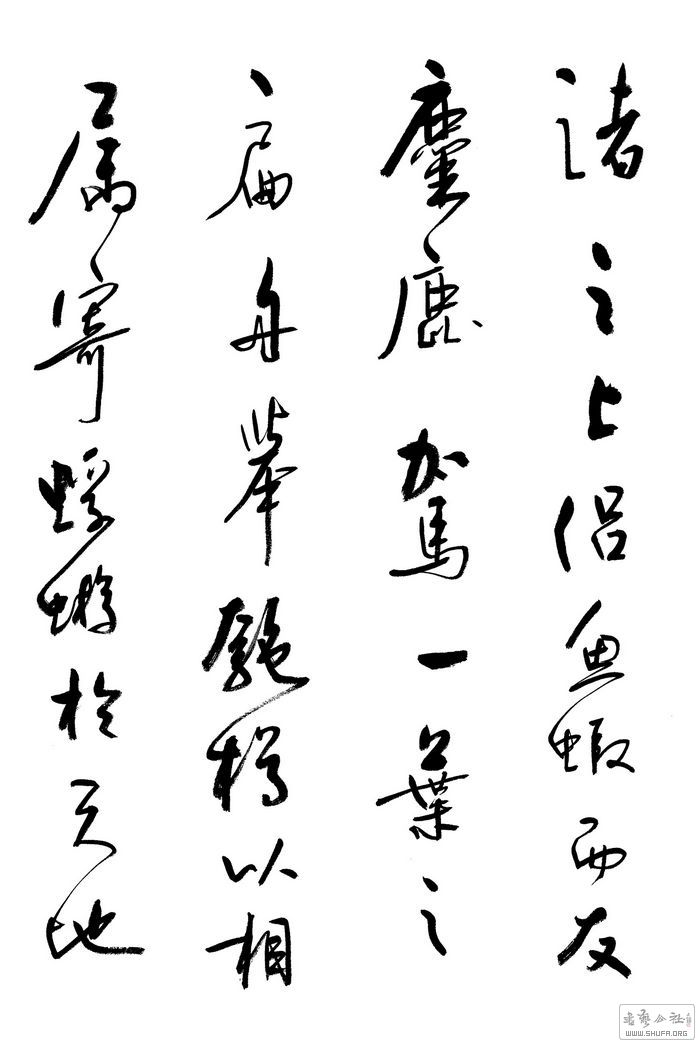 渚之上侣魚蝦而友
麋鹿駕一葉之
扁舟舉匏樽以相
属寄蜉蝣於天地
WWW.SHUFA.ORG